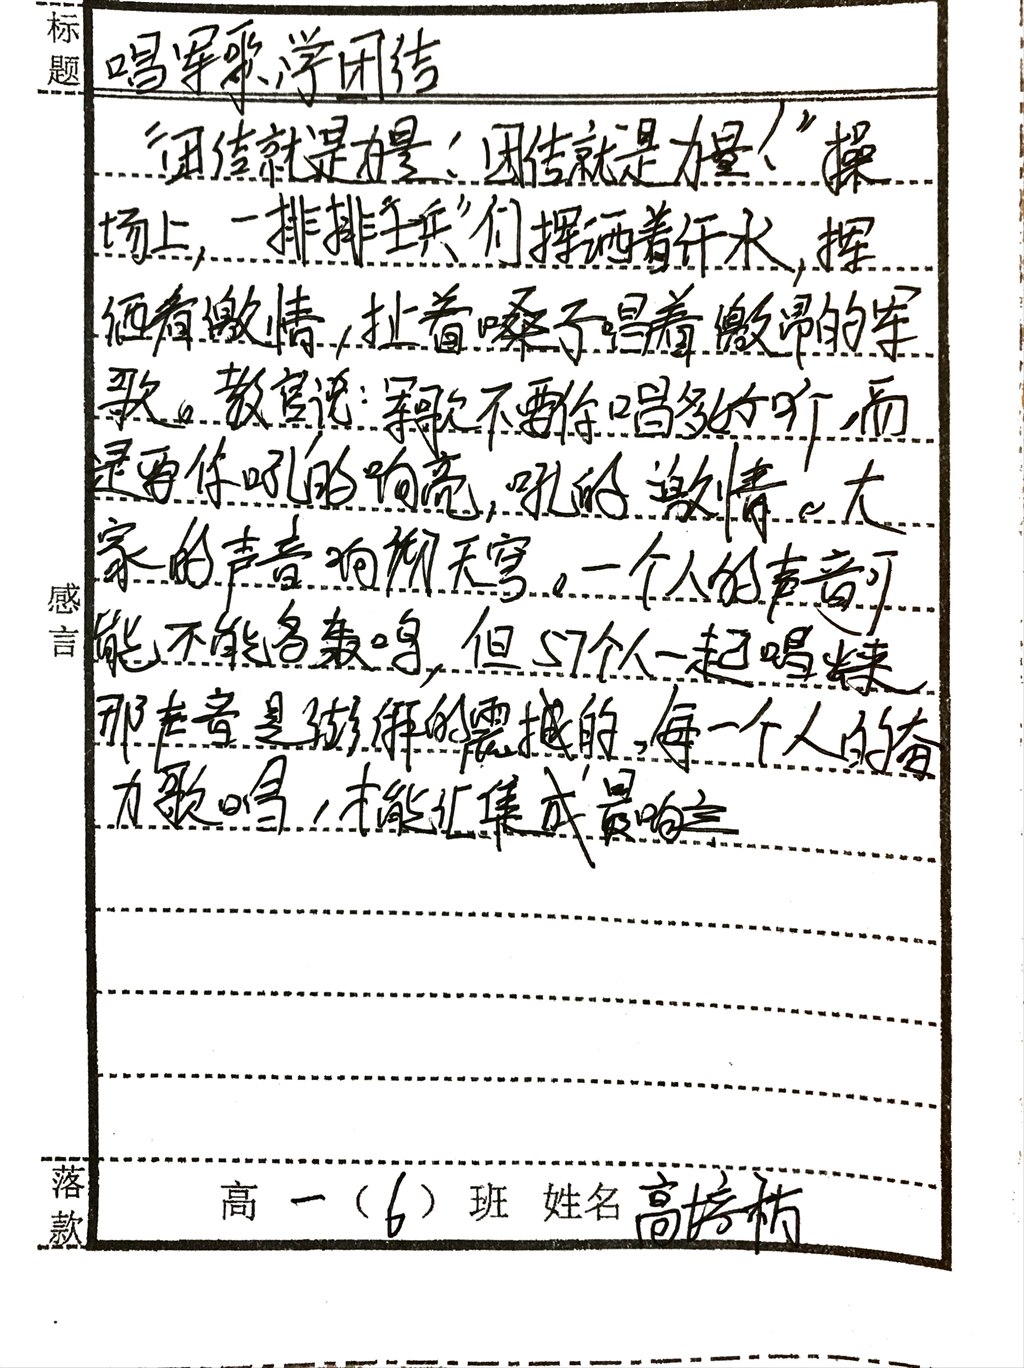 标题
唱军歌学团结
“团结就是力量！团结就是力量！”操
场上，一排排“士兵”们挥洒着汗水，挥
洒着激情，扯着嗓子唱着激昂的军
歌。教官说：军歌不要你唱多好听，而
是要你吼的响亮，吼的激情。大
家的声音响彻天穹。一个人的声音可
能不能名轰鸣，但57个人一起唱出来
那声音是澎湃的震撼的。每一个人的奋
力歌唱，才能汇集成最响亮
感言
落款
高一（6）班 姓名 高培